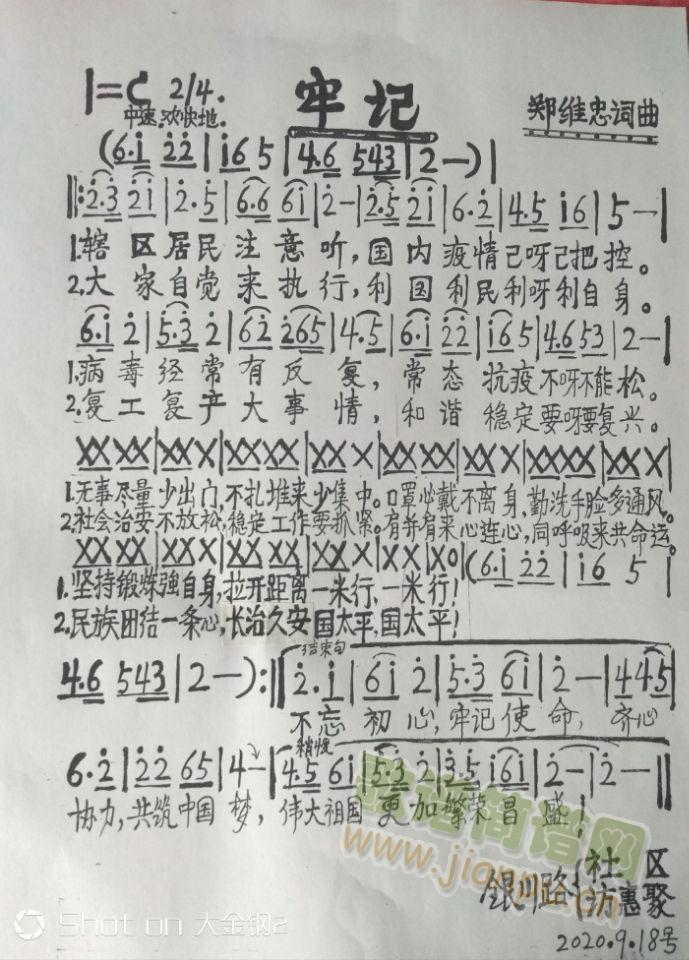 1=C 2/4.
牢记
中速.欢快地.
郑维忠词曲
(6.i 22|i65|4.6 543|2—)|
‖:2.3 2i|2.5|6.6 6i|2—|2.5 2i|6.2|4.5 i6|5—|
1.辖区居民注意听,国内疫情己呀己把控。
2.大家自觉来执行,利国利民利呀利自身。
6.i 2|5.3 2|62 265|4.5|6.i 22|i65|4.6 53|2—|
1.病毒经常有反复,常态抗疫不呀不能松。
2.复工复产大事情,和谐稳定要呀要复兴。
XX XX|XX X|XX XX|XX X|XX XX|XX X|XXXX|XX X|
1.无事尽量少出门,不扎堆来少集中。口罩必戴不离身,勤洗手脸多通风。
2.社会治安不放松,稳定工作要抓紧。肩并肩来心连心,同呼吸来共命运。
XX XX|XX X|XX XX|XX X|XX X0|(6.i 22|i6 5|
1.坚持锻炼强自身,拉开距离一米行,一米行!
2.民族团结一条心,长治久安国太平,国太平!
结束句
4.6 543|2—):‖2.i|6i 2|5.3 6i|2—|445|
不忘初心,牢记使命,齐心
稍慢
6.2|22 65|4—|4.5 6i|5.3 2|3.5 i6i|2—|2—‖
协力,共筑中国梦,伟大祖国更加繁荣昌盛!
简谱网
www.jianpu.cn
银川路{社区
访惠聚
2020.9.18号
Shot on 大金钢2